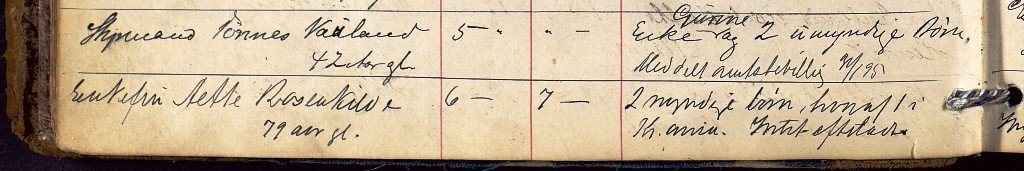 Gurine
Skomand Tønnes Vaaland 5 " " - Enke og 2 umyndige Børn.
42 Aar gl. Meddelt amtsbevillig 95
Enkefru Aette Rosenkilde 6 - 7 - 2 myndige børn, hvoraf 1 i
79 aar gl. Kr.ania. Intet efterladt.